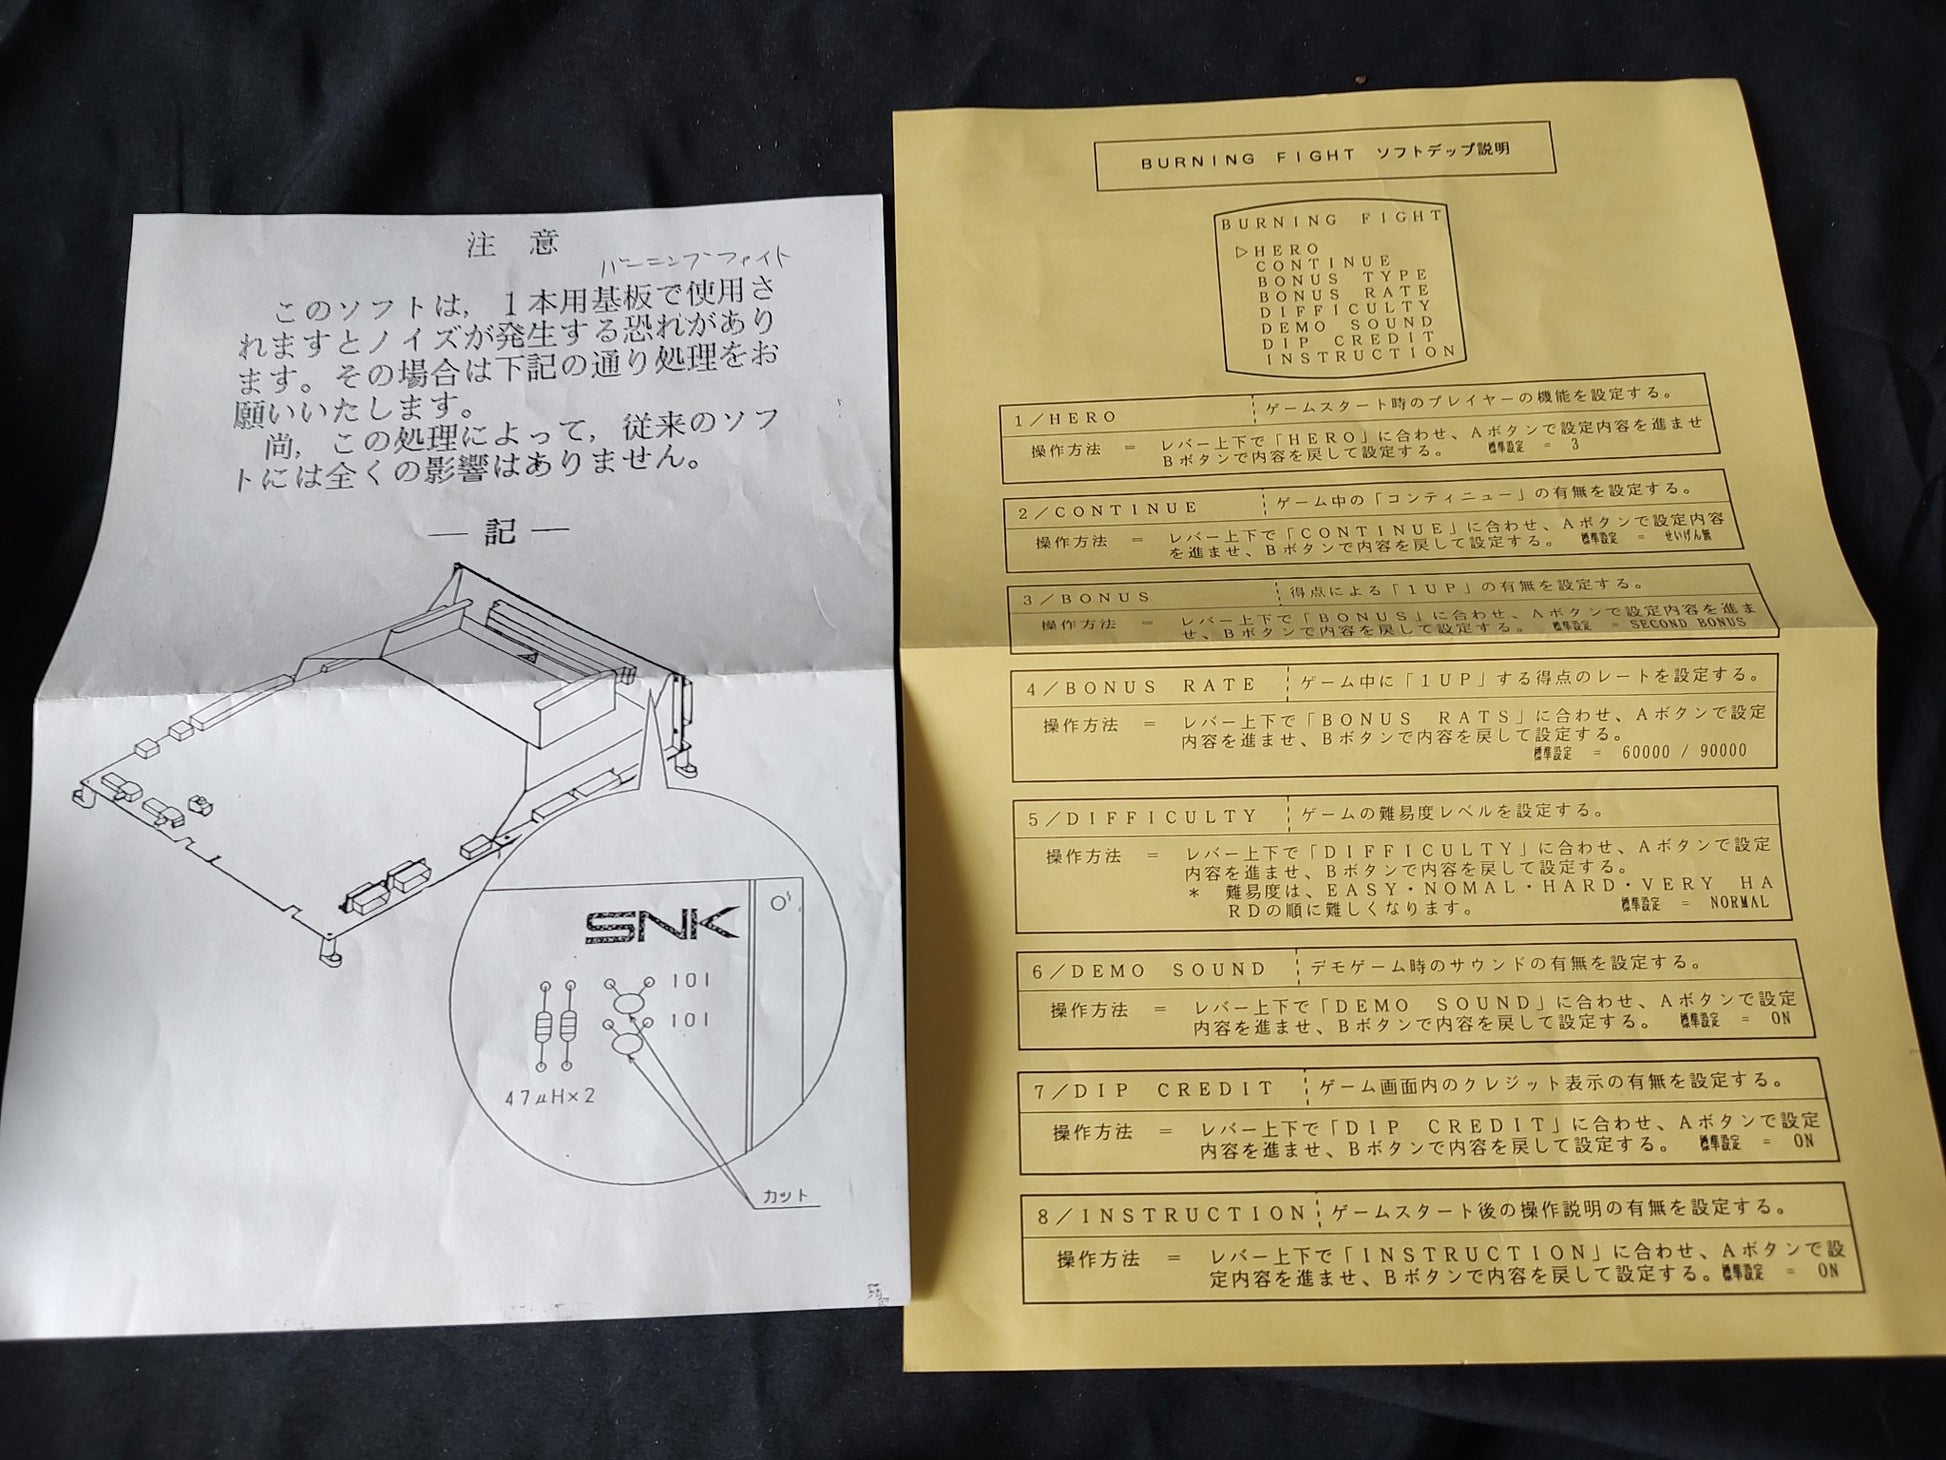 注　意
バーニングファイト
このソフトは，１本用基板で使用さ
れますとノイズが発生する恐れがあり
ます。その場合は下記の通り処理をお
願いいたします。
尚，この処理によって，従来のソフ
トには全くの影響はありません。
― 記 ―
SNK
101
101
47μH×2
カット
BURNING FIGHT ソフトデップ説明
BURNING FIGHT
▷HERO
CONTINUE
BONUS TYPE
BONUS RATE
DIFFICULTY
DEMO SOUND
DIP CREDIT
INSTRUCTION
1／HERO ゲームスタート時のプレイヤーの機能を設定する。
操作方法 ＝ レバー上下で「HERO」に合わせ、Aボタンで設定内容を進ませ
Bボタンで内容を戻して設定する。 標準設定 ＝ 3
2／CONTINUE ゲーム中の「コンティニュー」の有無を設定する。
操作方法 ＝ レバー上下で「CONTINUE」に合わせ、Aボタンで設定内容
を進ませ、Bボタンで内容を戻して設定する。 標準設定 ＝ せいげん無
3／BONUS 得点による「1UP」の有無を設定する。
操作方法 ＝ レバー上下で「BONUS」に合わせ、Aボタンで設定内容を進ま
せ、Bボタンで内容を戻して設定する。 標準設定 ＝ SECOND BONUS
4／BONUS RATE ゲーム中に「1UP」する得点のレートを設定する。
操作方法 ＝ レバー上下で「BONUS RATS」に合わせ、Aボタンで設定
内容を進ませ、Bボタンで内容を戻して設定する。
標準設定 ＝ 60000 / 90000
5／DIFFICULTY ゲームの難易度レベルを設定する。
操作方法 ＝ レバー上下で「DIFFICULTY」に合わせ、Aボタンで設定
内容を進ませ、Bボタンで内容を戻して設定する。
＊ 難易度は、EASY・NOMAL・HARD・VERY HA
RDの順に難しくなります。 標準設定 ＝ NORMAL
6／DEMO SOUND デモゲーム時のサウンドの有無を設定する。
操作方法 ＝ レバー上下で「DEMO SOUND」に合わせ、Aボタンで設定
内容を進ませ、Bボタンで内容を戻して設定する。 標準設定 ＝ ON
7／DIP CREDIT ゲーム画面内のクレジット表示の有無を設定する。
操作方法 ＝ レバー上下で「DIP CREDIT」に合わせ、Aボタンで設定
内容を進ませ、Bボタンで内容を戻して設定する。 標準設定 ＝ ON
8／INSTRUCTION ゲームスタート後の操作説明の有無を設定する。
操作方法 ＝ レバー上下で「INSTRUCTION」に合わせ、Aボタンで設
定内容を進ませ、Bボタンで内容を戻して設定する。標準設定 ＝ ON